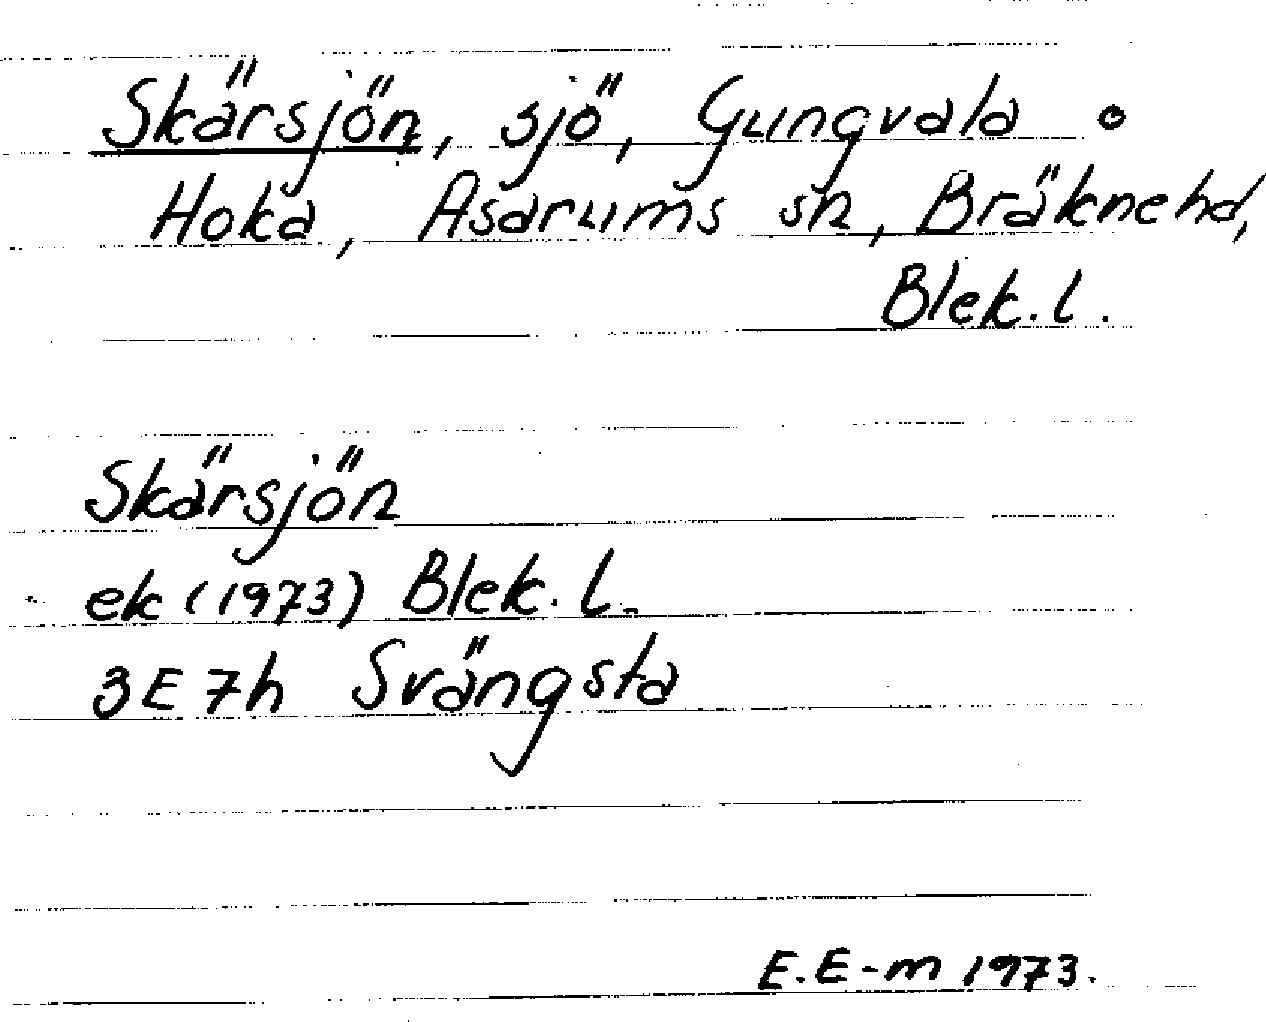 Skärsjön, sjö, Gungvala o
Hoka, Asarums sn, Bräknehd,
Blek. l.
Skärsjön
ek (1973) Blek. l.
3E7h Svängsta
E.E-m 1973.